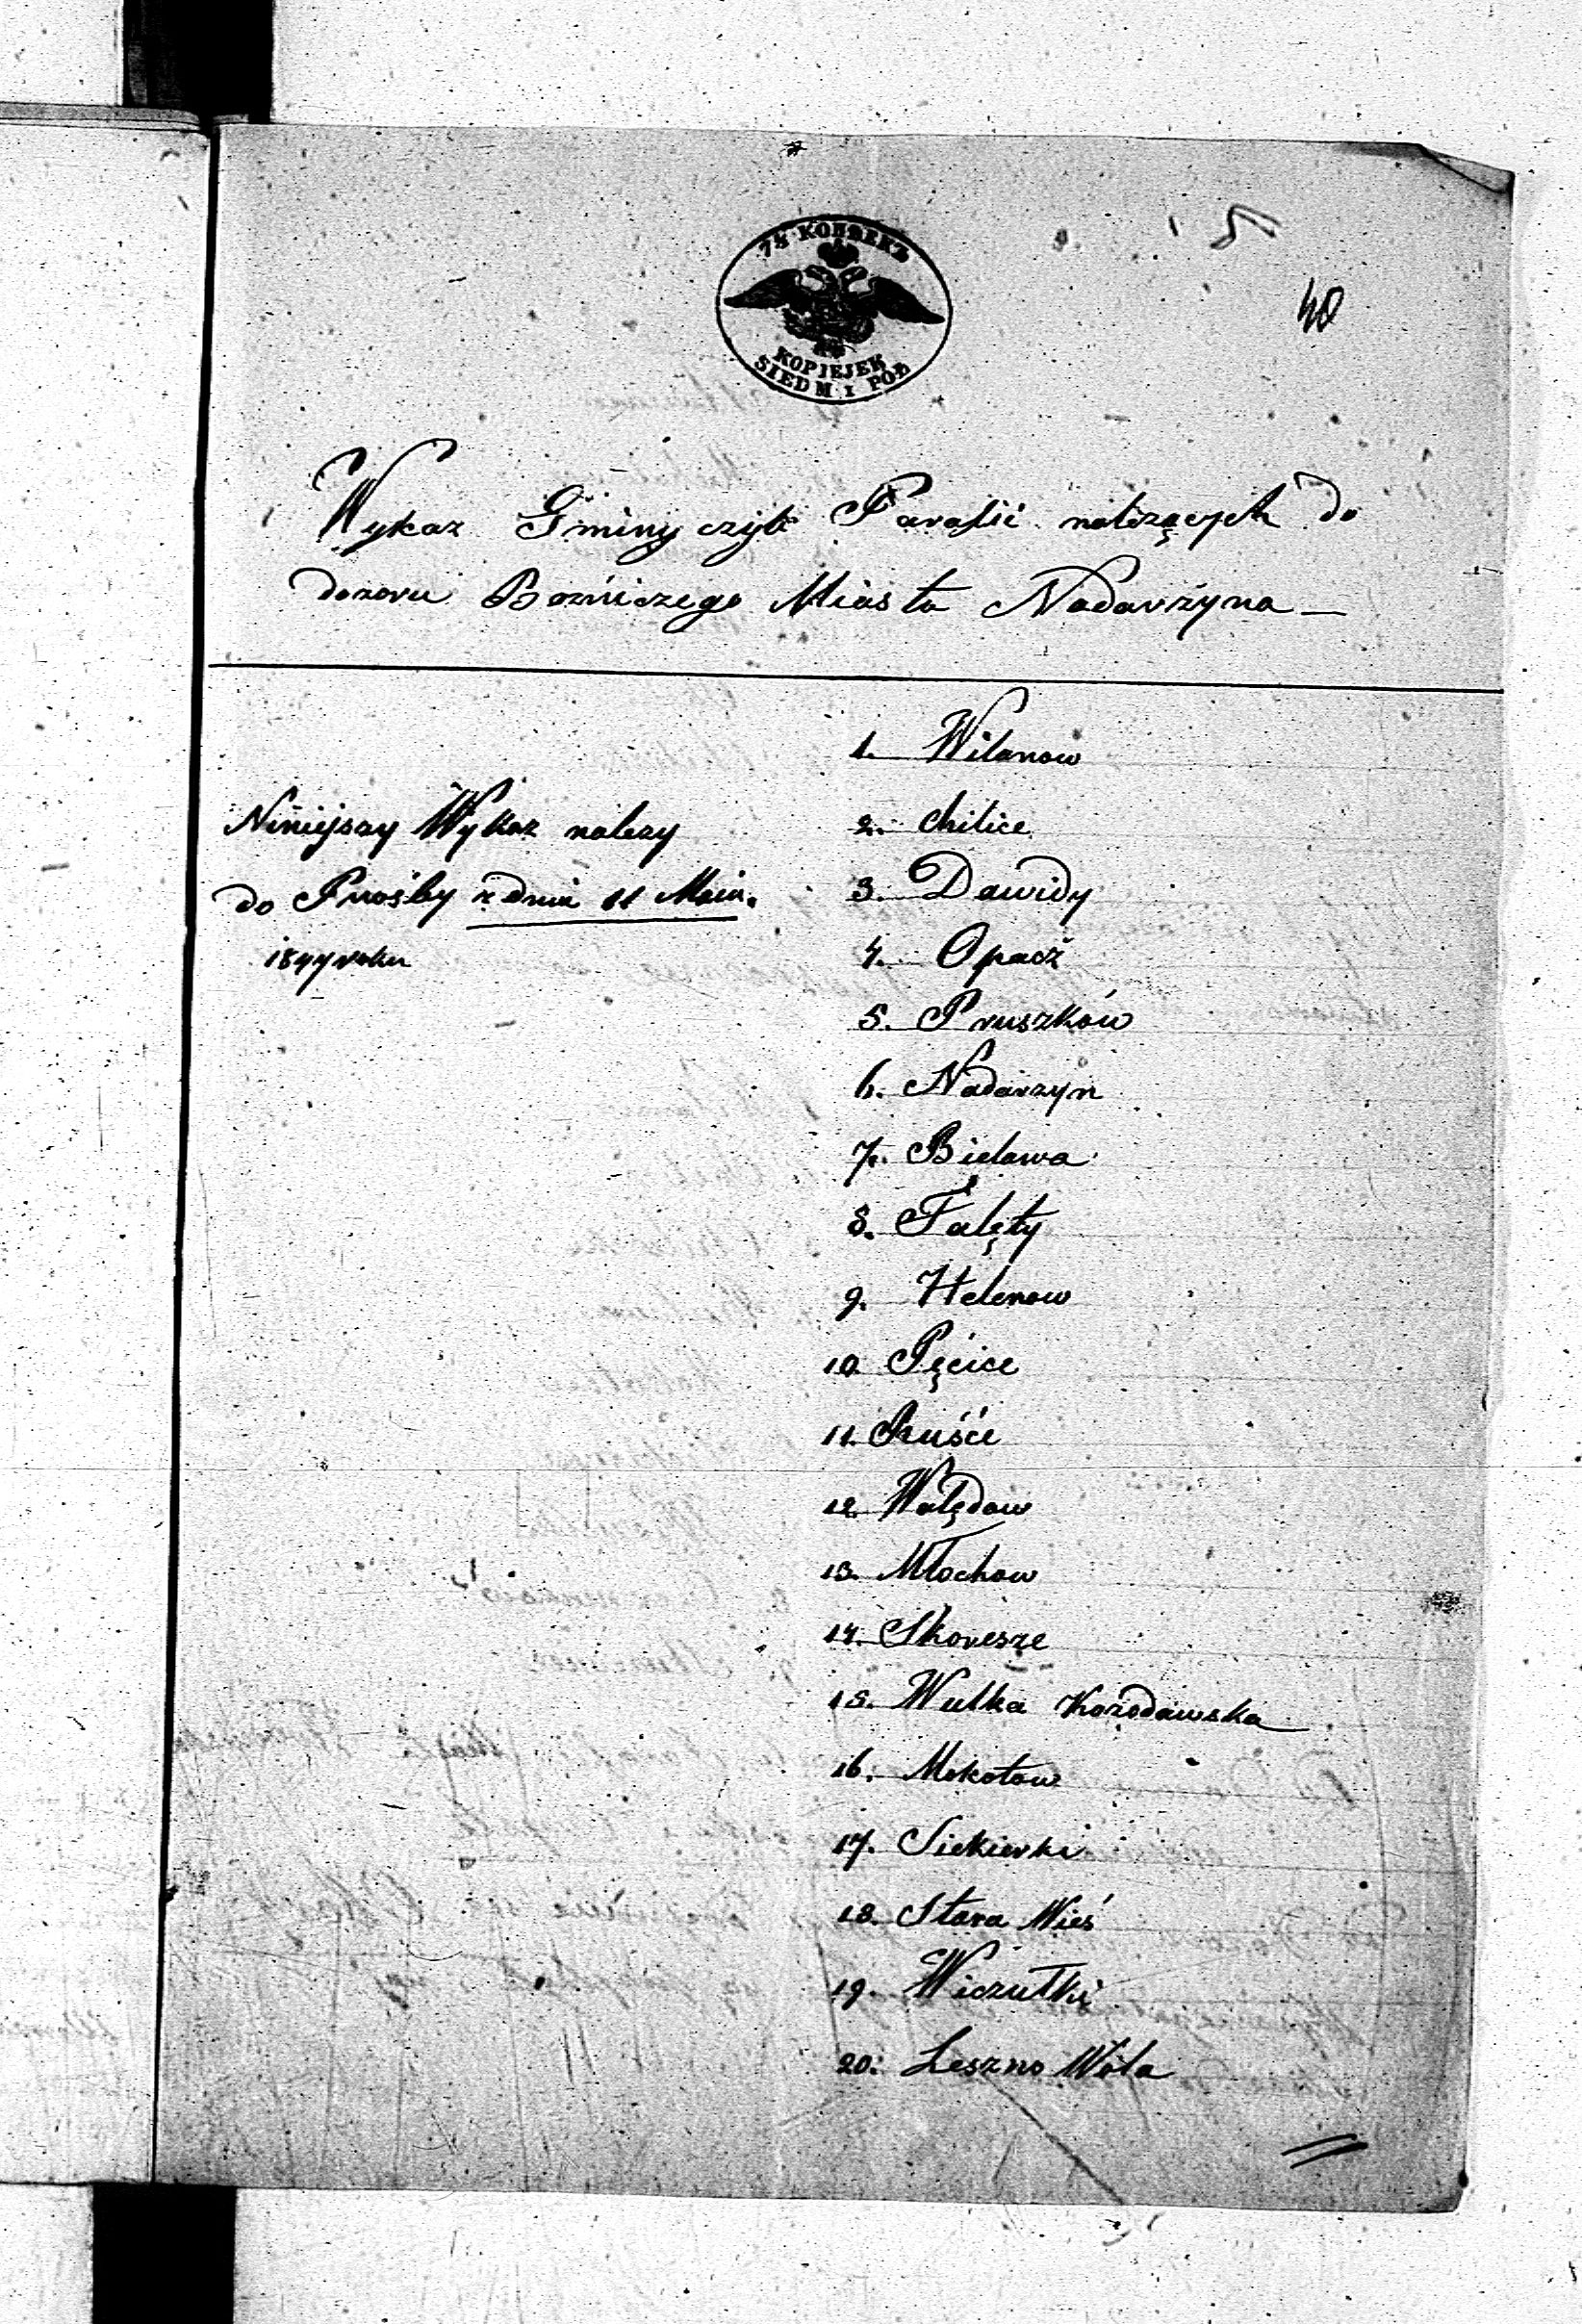 7½ КОПѢЕКЪ
KOPIEJEK
SIEDM I PÓŁ
5
40
Wykaz Gminy czyli Parafii należących do
dozoru Bożniczego Miasta Nadarzyna —
1. Wilanow
Niniejszy Wykaz należy
2. Chilice
do Prośby z dnia 11 Maia
3. Dawidy
1844 roku
4. Opacż
5. Pruszków
6. Nadarzyn
7. Bielawa
8. Falęty
9. Helenow
10. Pęcice
11. Ruście
12. Walędow
13. Młochow
14. Skorosze
15. Wulka Kozodawska
16. Mokotow
17. Siekierki
18. Stara Wieś
19. Wiczułki
20. Leszno Wola